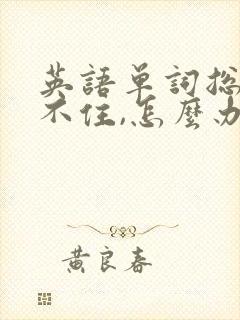 英語单詞总
不住,怎麽办
黄良春